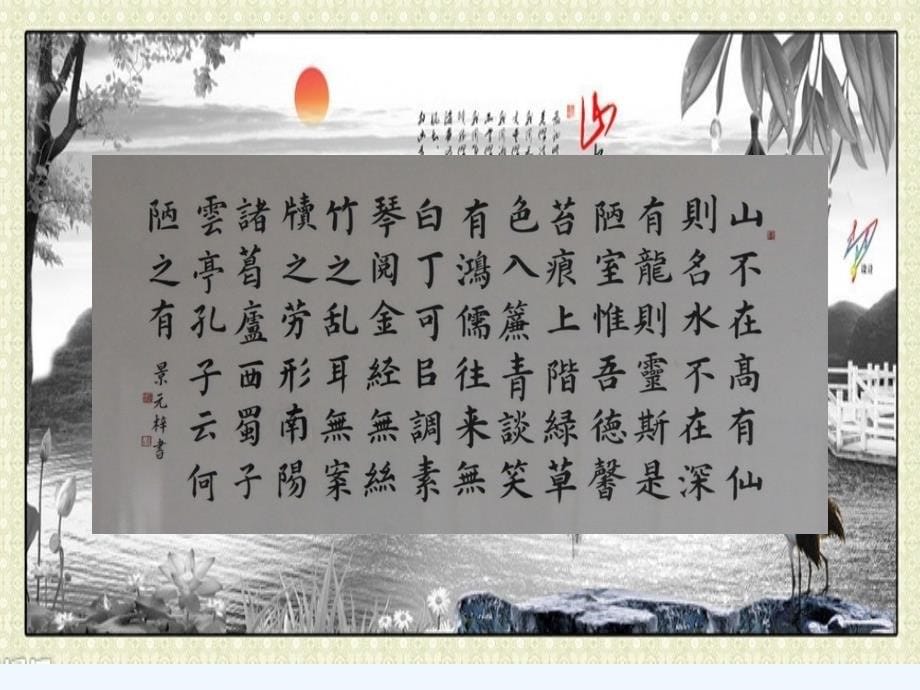 山不在高有仙
則名水不在深
有龍則靈斯是
陋室惟吾德馨
苔痕上階緑草
色入簾青談笑
有鴻儒往来無
白丁可㠯調素
琴阅金経無絲
竹之乱耳無案
牘之劳形南陽
諸葛廬西蜀子
雲亭孔子云何
陋之有
景元梓書
设计